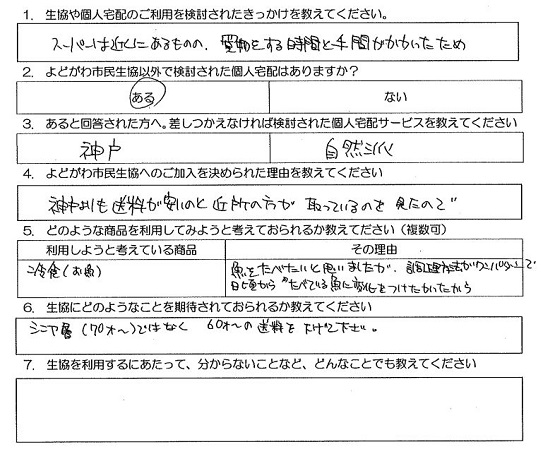 1. 生協や個人宅配のご利用を検討されたきっかけを教えてください。
スーパーは近くにあるものの、買物をする時間と手間がかかいたため
2. よどがわ市民生協以外で検討された個人宅配はありますか？
ある ない
3. あると回答された方へ。差しつかえなければ検討された個人宅配サービスを教えてください
神戸 自然派
4. よどがわ市民生協へのご加入を決められた理由を教えてください
神戸よりも送料が安いのと近所の方が 取っているのを見たので
5. どのような商品を利用してみようと考えておられるか教えてださい（複数可）
利用しようと考えている商品 その理由
冷食(お魚) 魚をたべたいと思いましたが、調理方法がワンパターンで
日頃から食べている魚に変化をつけたかたから
6. 生協にどのようなことを期待されておられるか教えてください
シニア層(70才〜)ではなく 60才〜の送料を下げて下さい。
7. 生協を利用するにあたって、分からないことなど、どんなことでも教えてください